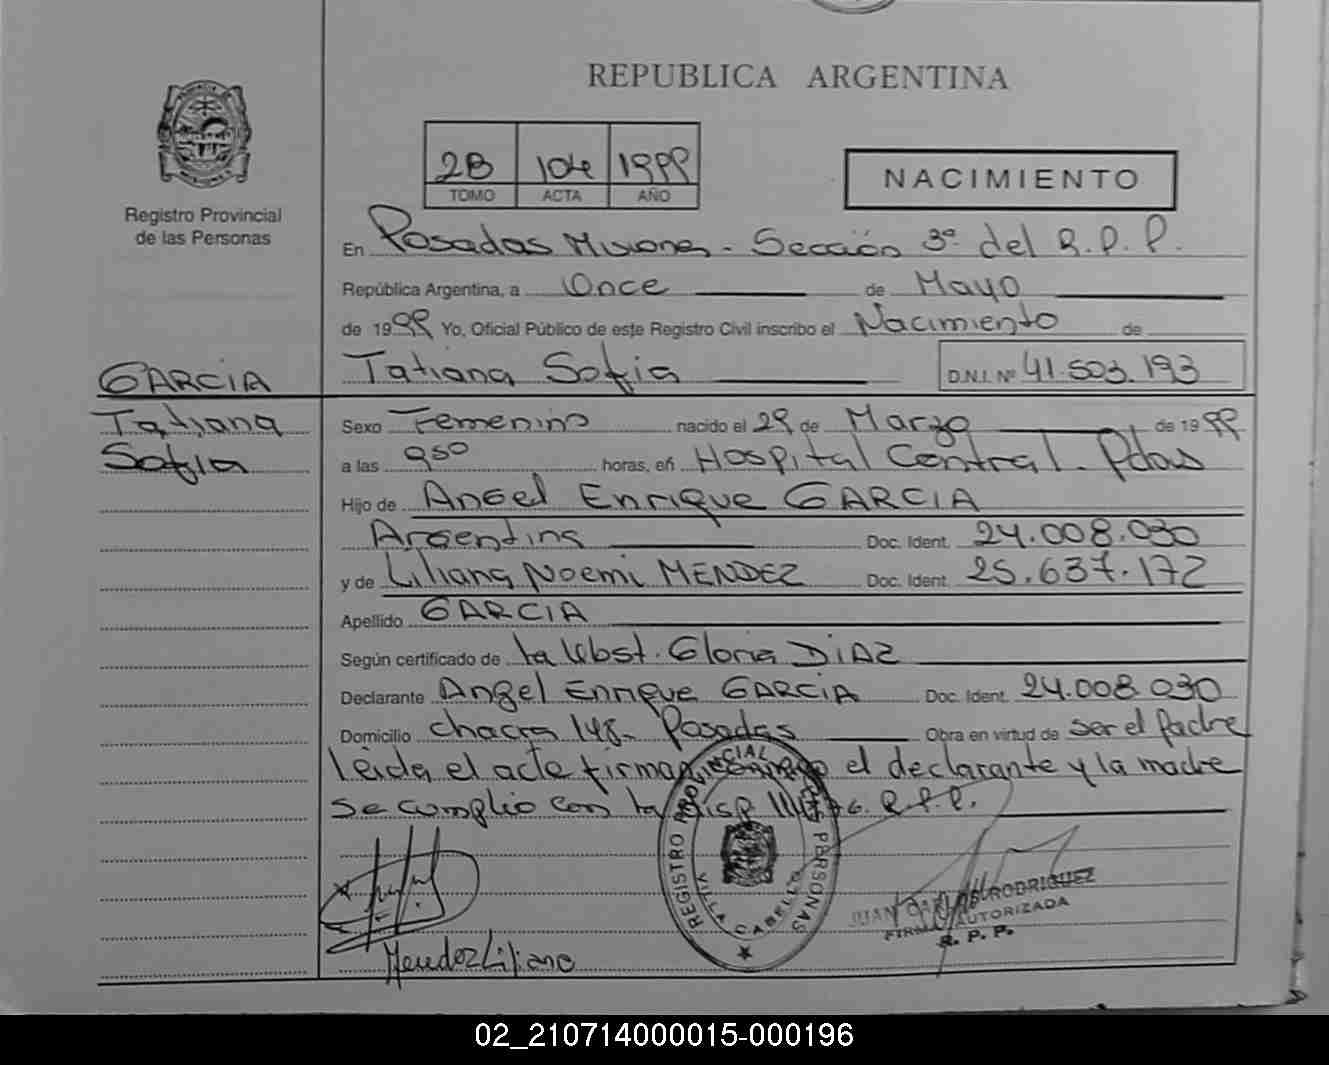 REPUBLICA ARGENTINA
2B 104 1999
TOMO ACTA AÑO
NACIMIENTO
Registro Provincial
de las Personas
En Posadas Misiones - Sección 3ª del R.P.P.
República Argentina, a Once de Mayo
de 1999 Yo, Oficial Público de este Registro Civil inscribo el Nacimiento de
Tatiana Sofia D.N.I. Nº 41.503.193
GARCIA
Tatiana
Sofia
Sexo Femenino nacido el 29 de Marzo de 1999
a las 950 horas, en Hospital Central. Pdas
Hijo de Angel Enrique GARCIA
Argentina Doc. Ident. 24.008.030
y de Liliana Noemi MENDEZ Doc. Ident. 25.637.172
Apellido GARCIA
Según certificado de la Obst. Gloria DIAZ
Declarante Angel Enrique GARCIA Doc. Ident. 24.008.030
Domicilio Chacra 148- Posadas Obra en virtud de ser el padre
leida el acta firman el declarante y la madre
se cumplio con la disp R.P.P.
REGISTRO PROVINCIAL DE LAS PERSONAS
VILLA CABELLO
JUAN CARLOS RODRIGUEZ
FIRMA AUTORIZADA
R. P. P.
Mendez Liliana
02_210714000015-000196